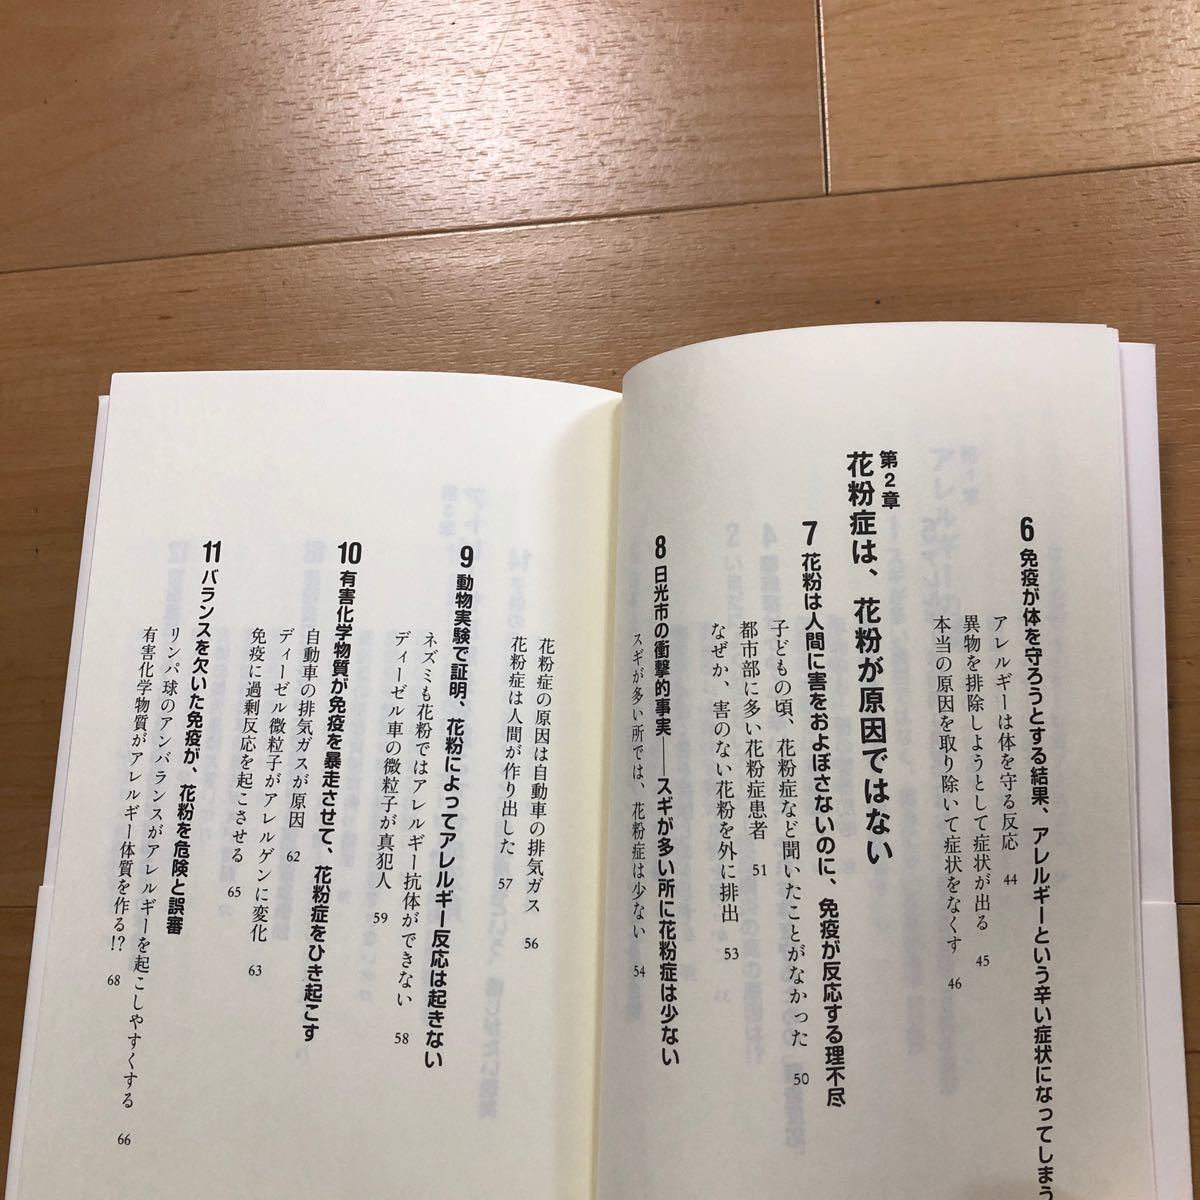 6 免疫が体を守ろうとする結果、アレルギーという辛い症状になってしまう
アレルギーは体を守る反応 44
異物を排除しようとして症状が出る 45
本当の原因を取り除いて症状をなくす 46
第2章
花粉症は、花粉が原因ではない
7 花粉は人間に害をおよぼさないのに、免疫が反応する理不尽
子どもの頃、花粉症など聞いたことがなかった 50
都市部に多い花粉症患者 51
なぜか、害のない花粉を外に排出 53
8 日光市の衝撃的事実――スギが多い所に花粉症は少ない
スギが多い所では、花粉症は少ない 54
花粉症の原因は自動車の排気ガス 56
花粉症は人間が作り出した 57
9 動物実験で証明、花粉によってアレルギー反応は起きない
ネズミも花粉ではアレルギー抗体ができない 58
ディーゼル車の微粒子が真犯人 59
10 有害化学物質が免疫を暴走させて、花粉症をひき起こす
自動車の排気ガスが原因 62
ディーゼル微粒子がアレルゲンに変化 63
免疫に過剰反応を起こさせる 65
11 バランスを欠いた免疫が、花粉を危険と誤審
リンパ球のアンバランスがアレルギーを起こしやすくする 66
有害化学物質がアレルギー体質を作る!? 68